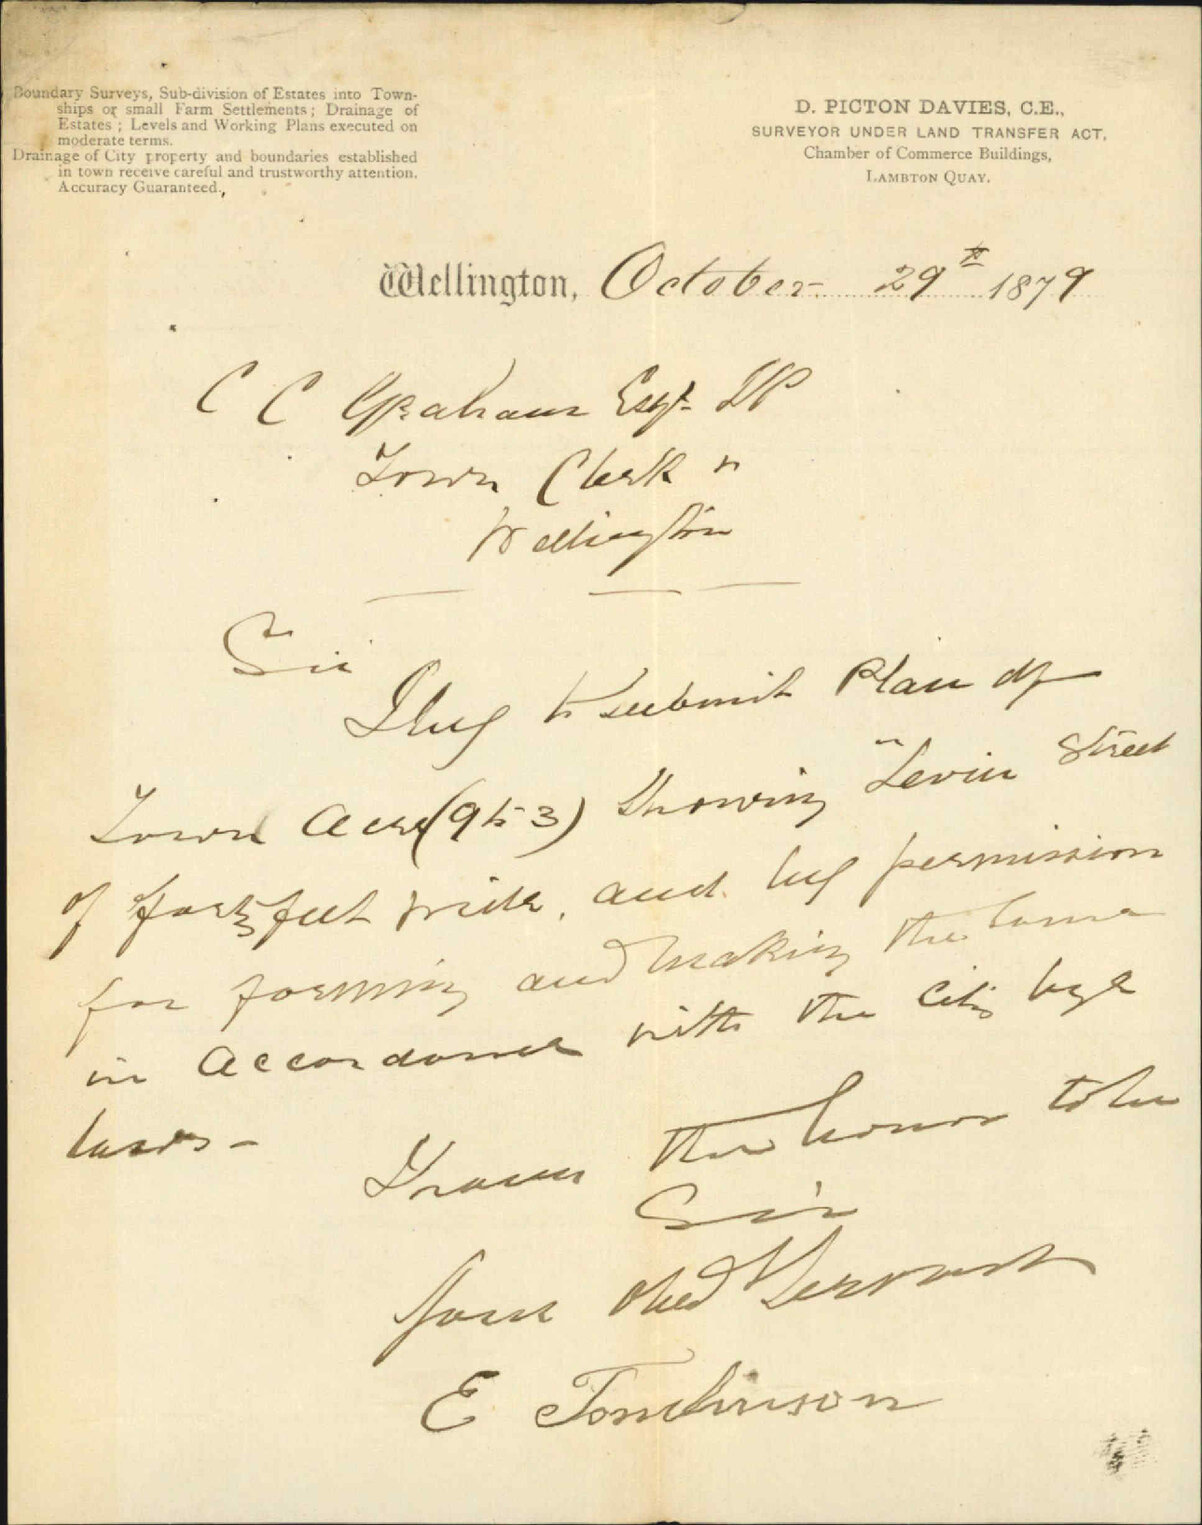 Boundary Surveys, Sub-division of Estates into Town-
ships or small Farm Settlements; Drainage of
Estates; Levels and Working Plans executed on
moderate terms.
Drainage of City property and boundaries established
in town receive careful and trustworthy attention.
Accuracy Guaranteed.
D. PICTON DAVIES, C.E.,
SURVEYOR UNDER LAND TRANSFER ACT,
Chamber of Commerce Buildings,
LAMBTON QUAY.
Wellington, October 29th 1879
C C Graham Esqr JP
Town Clerk
Wellington
Sir
I beg to submit Plan of
Town Acre showing Levin Street
of forty feet wide, and beg permission
for forming and making the same
in accordance with the City bye
laws -
I have the honor to be
Sir
Your Obed Servant
E Tomlinson